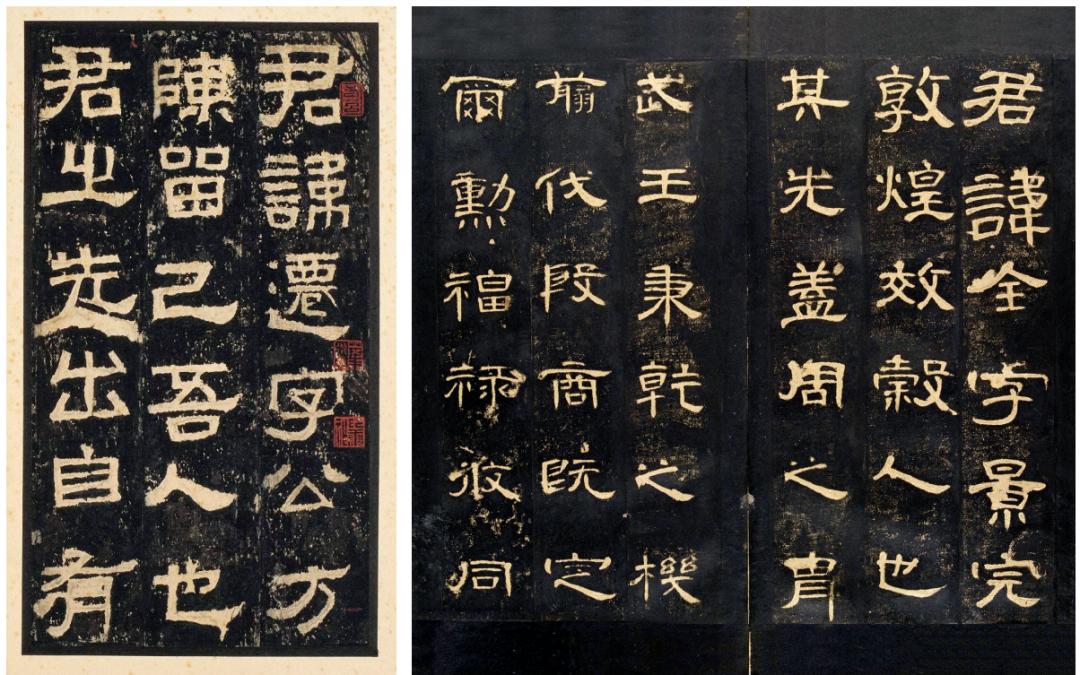 君諱遷字公方
陳留己吾人也
君之先出自有
君諱全字景完
敦煌效穀人也
其先蓋周之胄
武王秉乾之機
翦伐殷商既定
爾勳福祿攸同